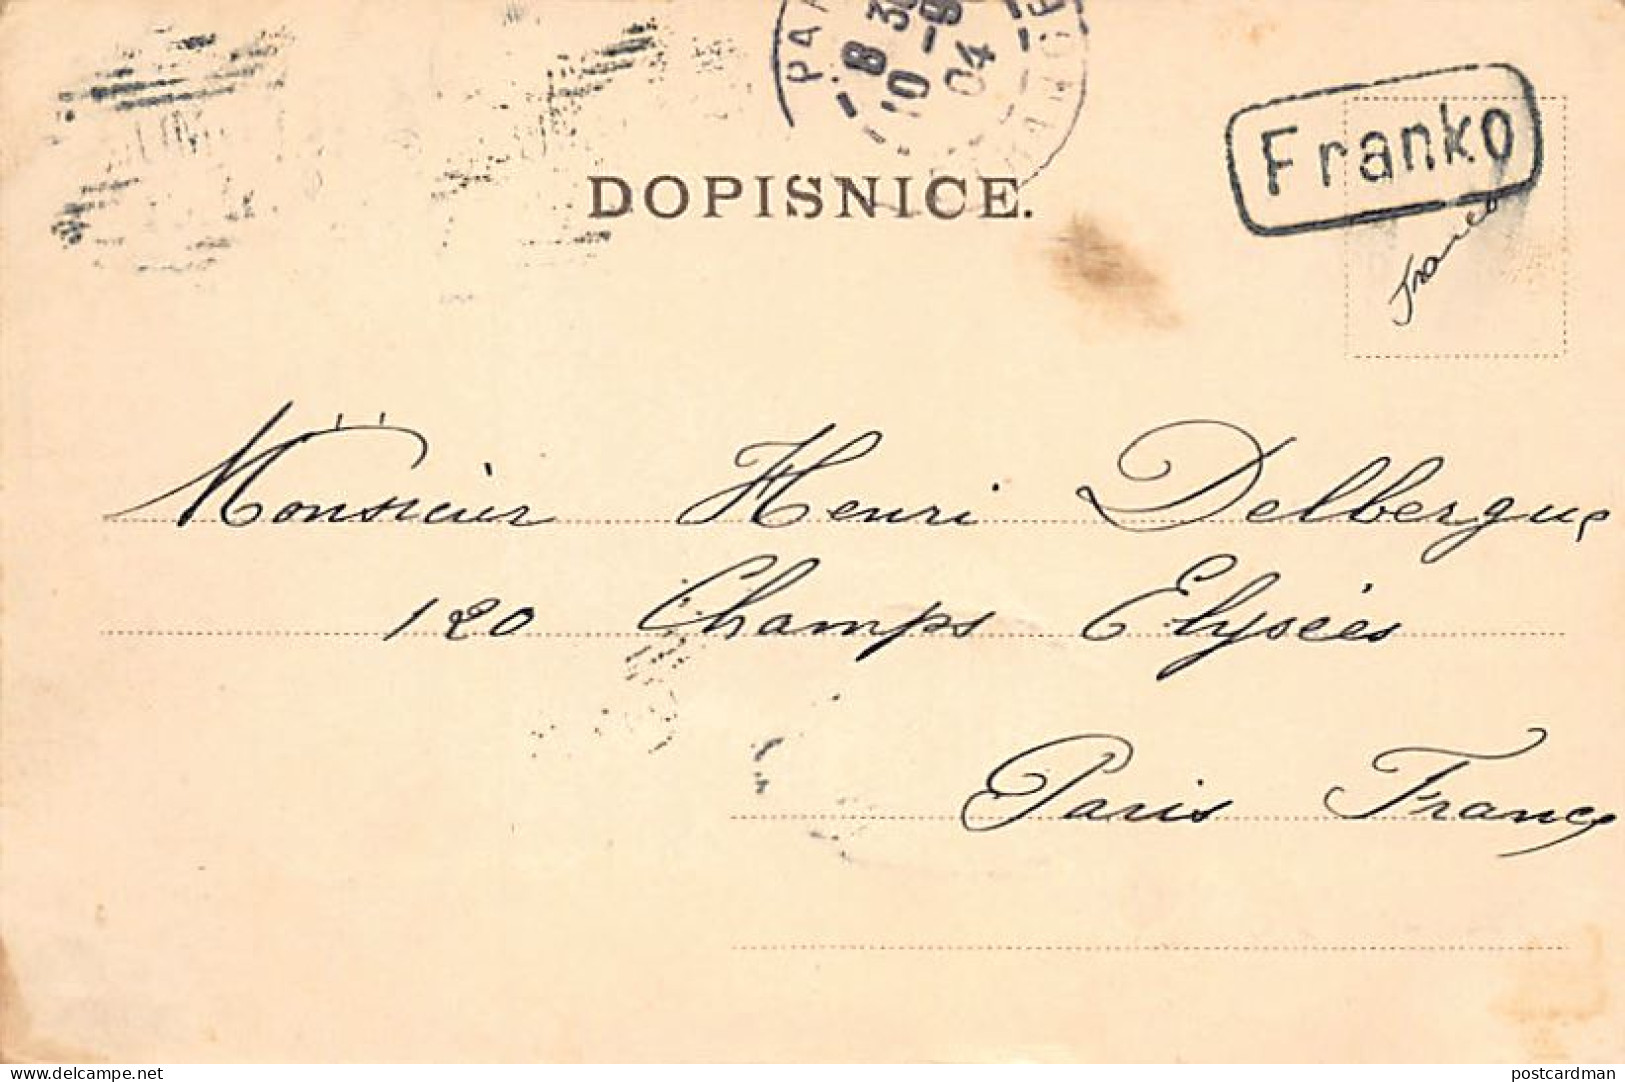 8 30
10 - 9
04
Franko
DOPISNICE.
Franco
Monsieur Henri Delbergue
120 Champs Elysées
Paris France
delcampe.net
postcardman